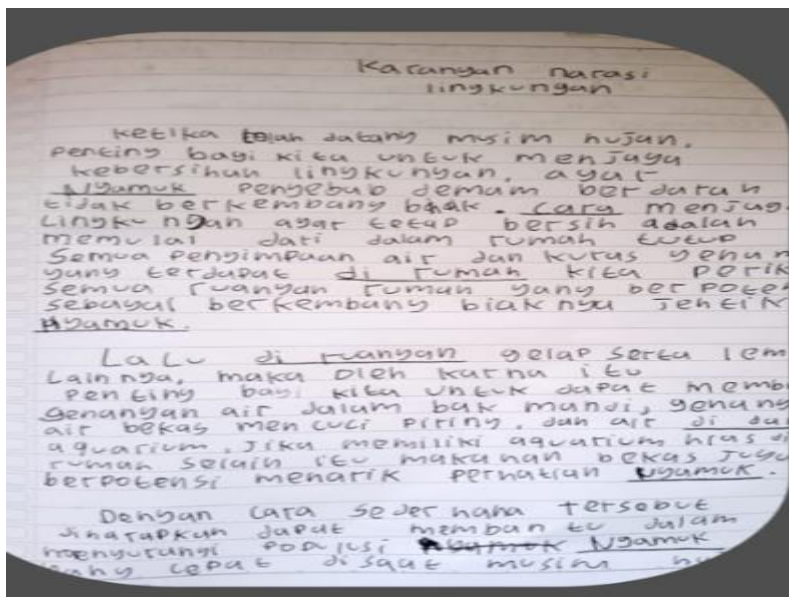 Karangan narasi
lingkungan
Ketika telah datang musim hujan.
Penting bagi kita untuk menjaga
kebersihan lingkungan, agar
Nyamuk Penyebab demam berdarah
tidak berkembang biak. Cara menjag
Lingkungan agar tetap bersih adalah
memulai dari dalam rumah tutup
Semua Penyimpaan air dan kuras genan
yang terdapat di rumah kita Perik
Semua ruangan rumah yang berpoten
sebagai berkembang biaknya Jentik
Nyamuk.
Lalu di ruangan gelap serta lem
Lainnya, maka oleh karna itu
Penting bagi kita untuk dapat memb
Genangan air dalam bak mandi, genang
air bekas mencuci Piring, dan air di da
aquarium. Jika memiliki aquarium hias di
rumah selain itu makanan bekas Juga
berpotensi menarik Perhatian Nyamuk.
Dengan Cara Sederhana tersebut
diharapkan dapat membantu dalam
mengurangi Nyamuk
yang cepat disaat musim hu